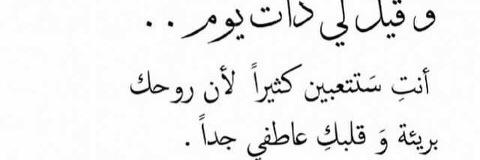 و قيل لي ذات يوم . .
أنتِ سَتتعبين كثيراً لأن روحك
بريئة وَ قلبكِ عاطفي جداً .